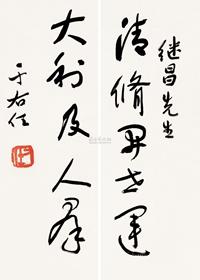 继昌先生
清脩开世运
大利及人群
于右任